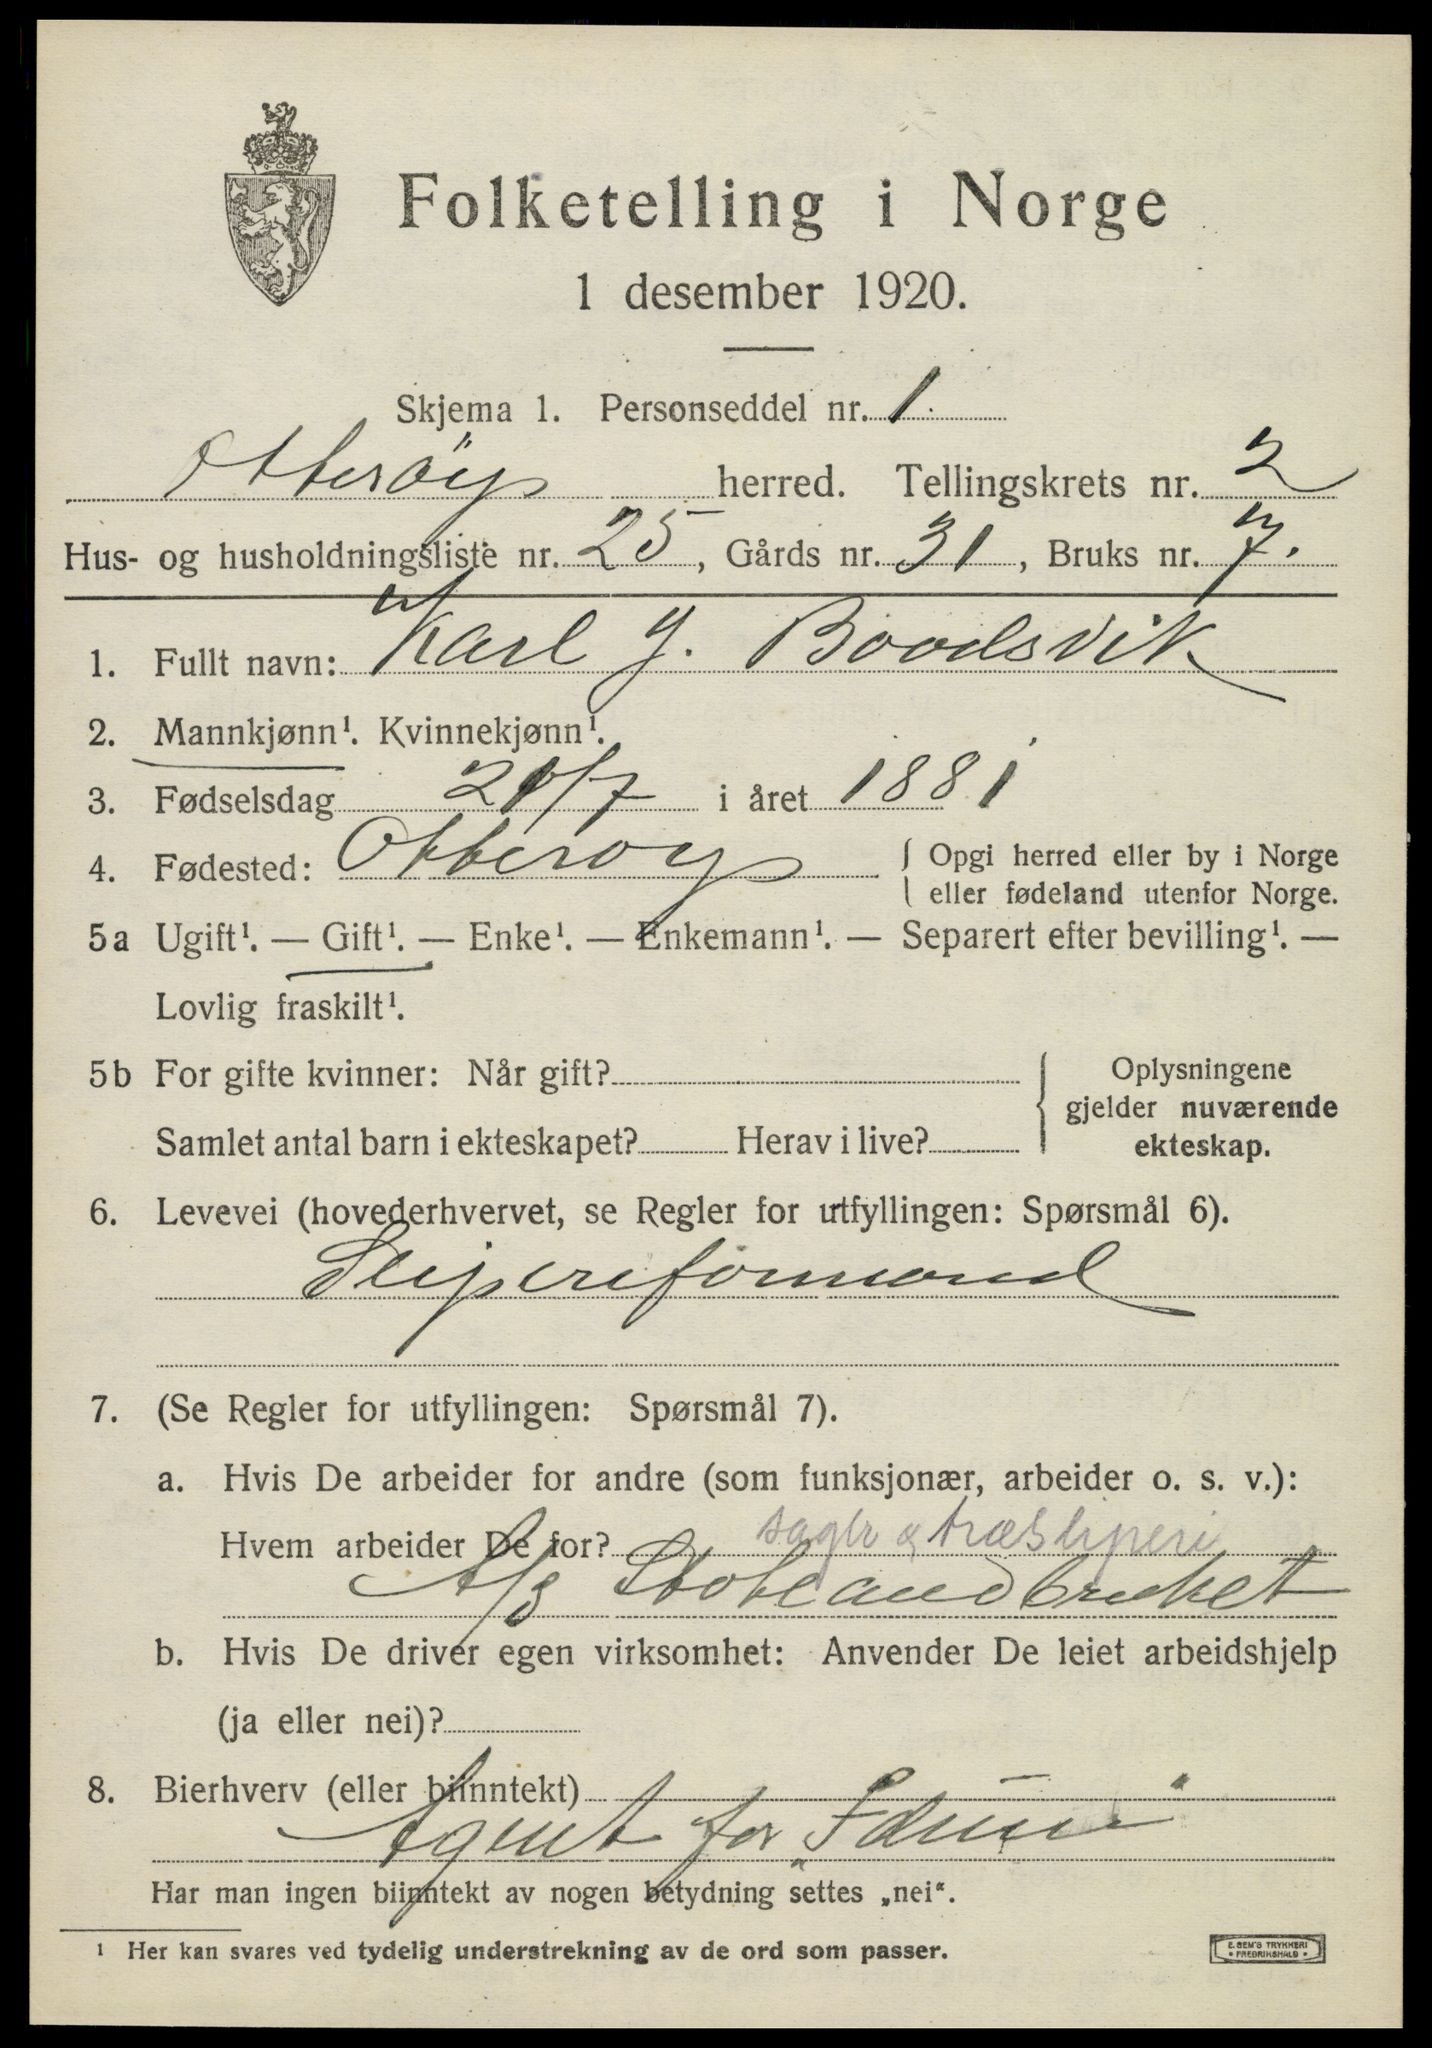 Folketelling i Norge
1 desember 1920.
Skjema 1. Personseddel nr. 1.
Otterøy herred. Tellingskrets nr. 2
Hus- og husholdningsliste nr. 25, Gårds nr. 31, Bruks nr. 7.
1. Fullt navn: Karl J. Boodsvik
2. Mannkjønn¹. Kvinnekjønn¹.
3. Fødselsdag 21/7 i året 1881
4. Fødested: Otterøy { Opgi herred eller by i Norge
eller fødeland utenfor Norge.
5a Ugift¹. — Gift¹. — Enke¹. — Enkemann¹. — Separert efter bevilling¹. —
Lovlig fraskilt¹.
5b For gifte kvinner: Når gift? { Oplysningene
gjelder nuværende
Samlet antal barn i ekteskapet? Herav i live? ekteskap.
6. Levevei (hovederhvervet, se Regler for utfyllingen: Spørsmål 6).
Sliperiformand
7. (Se Regler for utfyllingen: Spørsmål 7).
a. Hvis De arbeider for andre (som funksjonær, arbeider o. s. v.):
Hvem arbeider De for? sagbr & træsliperi
A/S Statlandbruket
b. Hvis De driver egen virksomhet: Anvender De leiet arbeidshjelp
(ja eller nei)?
8. Bierhverv (eller biinntekt)
Agent for "Idun"
Har man ingen biinntekt av nogen betydning settes „nei“.
¹ Her kan svares ved tydelig understrekning av de ord som passer.
E. SEM'S TRYKKERI
• FREDRIKSHALD •